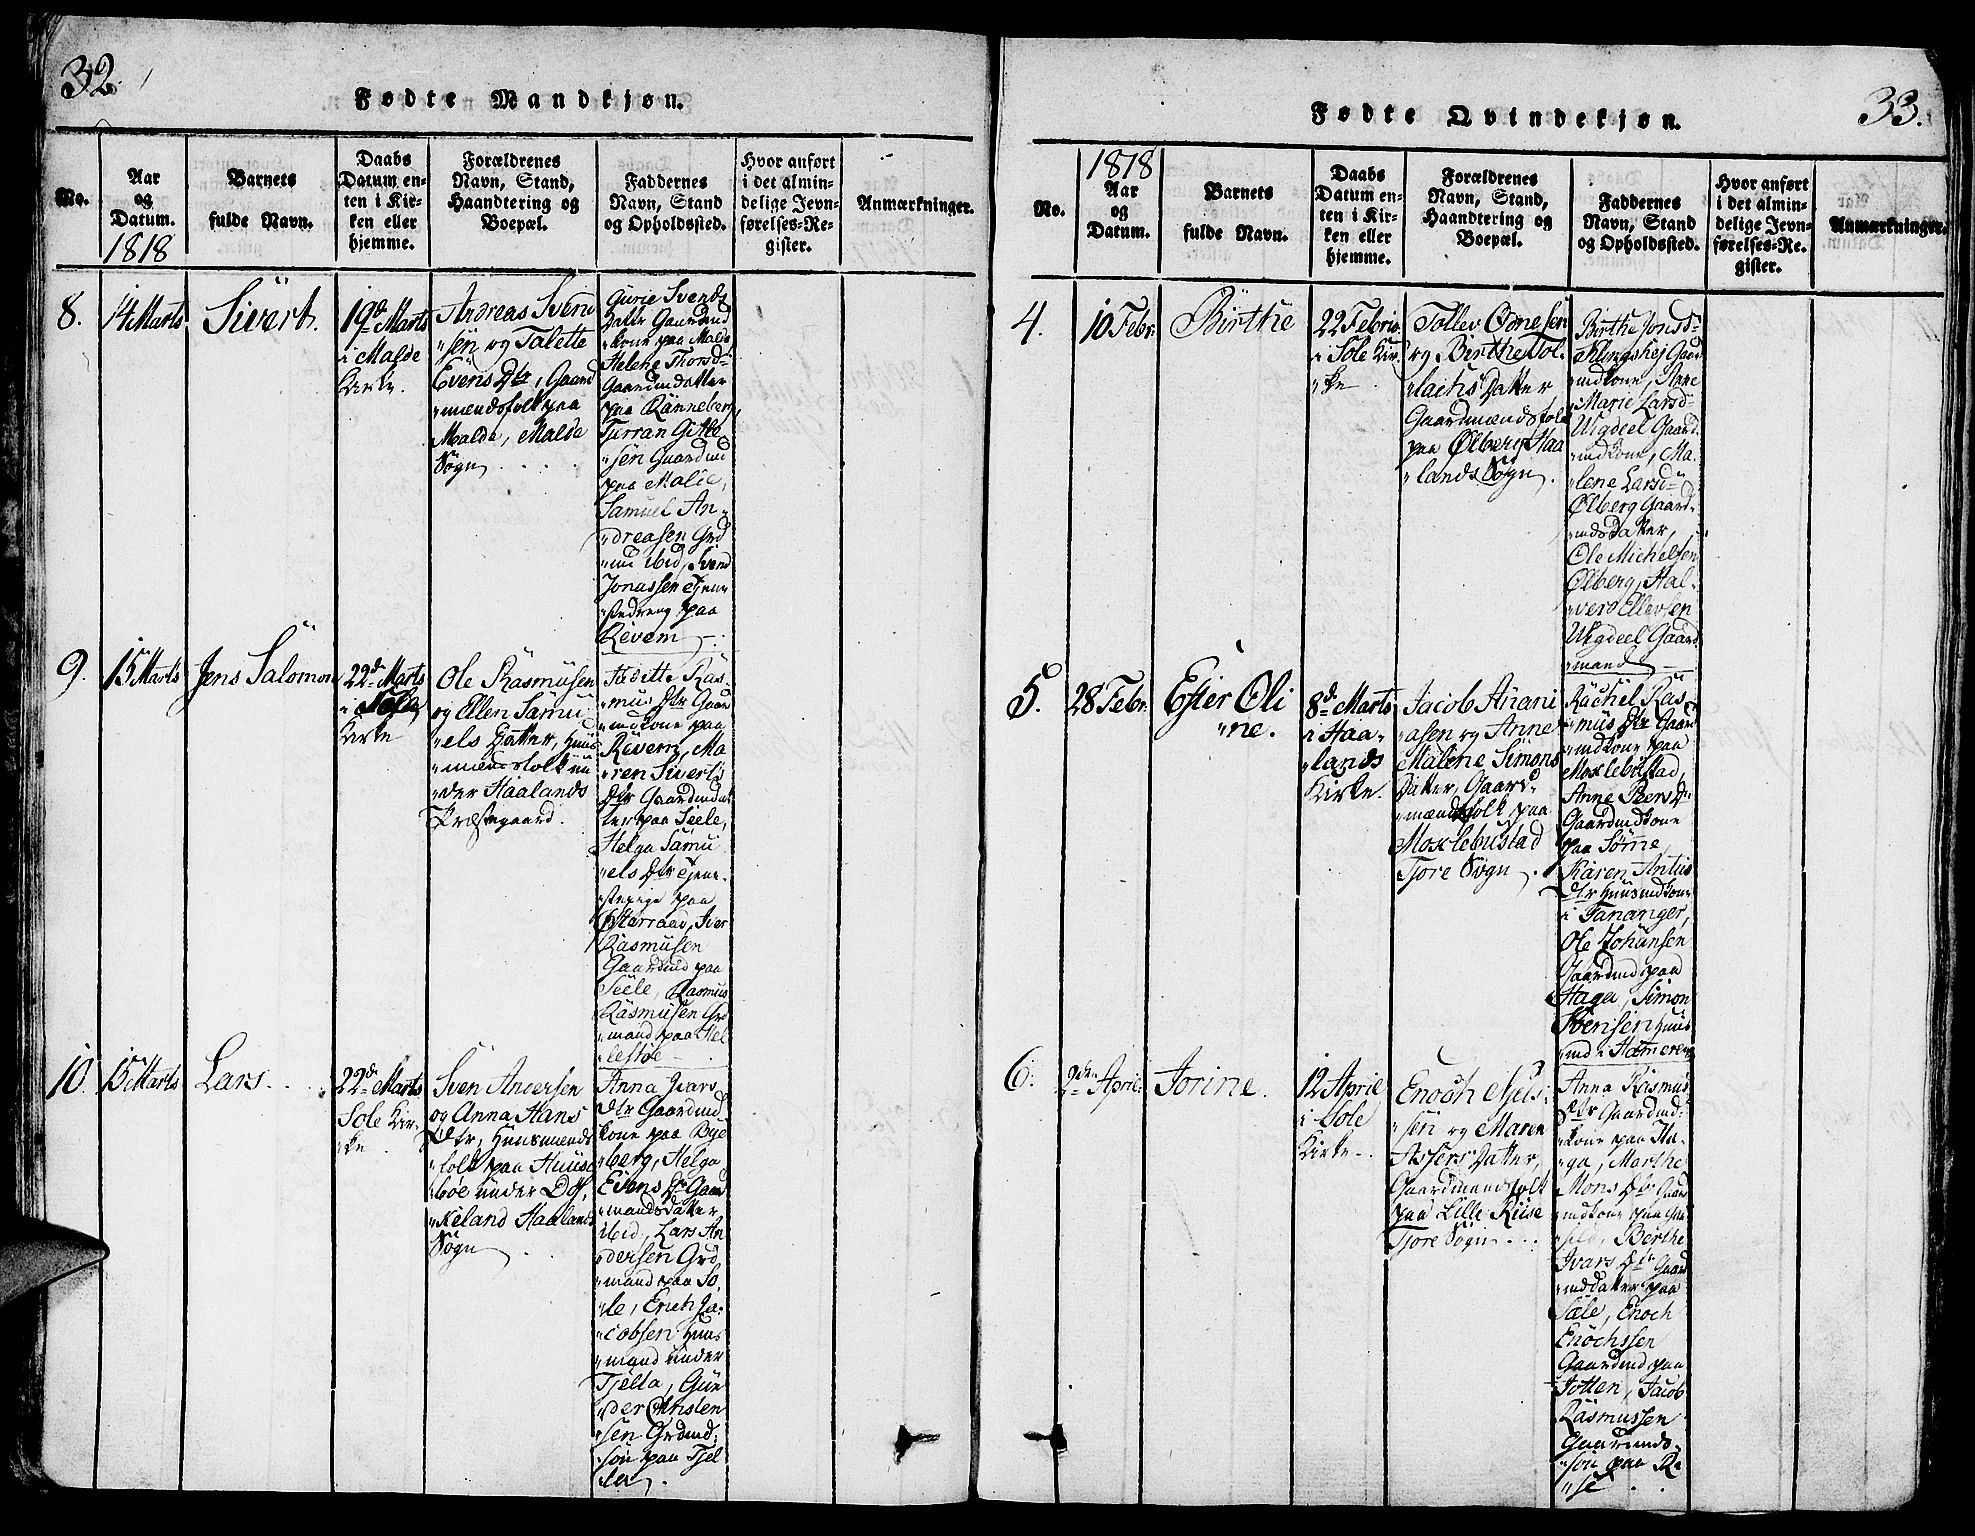 32.
Fødte Mandkjøn.
No.
Aar
og
Datum.
1818
Barnets
fulde Navn.
Daabs
Datum en-
ten i Kir-
ken eller
hjemme.
Forældrenes
Navn, Stand,
Haandtering og
Boepæl.
Faddernes
Navn, Stand
og Opholdssted.
Hvor anført
i det almin-
delige Jevn-
førelses-Re-
gister.
Anmærkninger.
8.
14 Marts
Sivert.
19d Marts
i Malde
Kirke.
Andreas Svend
"sen og Talette
Evens Dtr, Gaard
"mændsfolk paa
Malde, Malde
Sogn
Gurie Svends
Datter Gaardmd
"kone paa Malde
Helene Thorsd
Gaardmdatter
paa Rönneberg
Torran Gitle
"sen Gaardmd
paa Malde,
Samuel An-
"dreasen Grd
"md ibid, Svend
Jonassen tjene
"stedreng paa
Revem
9.
15 Marts
Jens Salomon
22d Marts
i Sole
Kirke
Ole Rasmusen
og Ellen Samu
"els Datter, Huus
"mændsfolk un
"der Haalands
Præstegaard.
Ras-
"mus Dtr Gaar
"mdkone paa
Revem, Ma
"ren Siverts
Dtr Gaardmdat
ter paa Seele,
Helga Samu
"els Dtr tjene-
"stepige paa
Iver
Rasmusen
Gaardmd paa
Seele, Rasmus
Rasmusen Grd
"mand paa Hel
"lestøe
10.
15 Marts
Lars
22d Marts
Sole Kir-
"ke
Sven Andersen
og Anna Hans
Dtr, Huusmænds
"folk paa Huuse
"bøe under Dys,
"keland Haalands
Sogn
Anna Ivars
Dtr Gaardmd
kone paa Bye
"berg, Helga
Evens Dtr Gaar
"mandsdatter
ibid, Lars An
"dersen Grd
"mand paa So
"le, Erich Ja-
"cobsen Huus
"mand under
Tjelta, Gun
"der Christen
"sen Grdmd:
"søn paa Tjel
"ta
33.
Fødte Qvindekjøn.
No.
1818
Aar
og
Datum.
Barnets
fulde Navn.
Daabs
Datum en-
ten i Kir-
ken eller
hjemme.
Forældrenes
Navn, Stand,
Haandtering og
Boepæl.
Faddernes
Navn, Stand
og Opholdssted.
Hvor anført
i det almin-
delige Jevn-
førelses-Re-
gister.
Anmærkninger.
4.
10 Febr:
Birthe
22 Febr:
i Sole Kir-
"ke
Tollev Odnesen
og Birthe Tol-
"lachs Datter
Gaardmændsfolk
paa Ølberg Haa
"lands Sogn.
Birthe Jonsd
Gaar
"mdkone, Anne
Marie Larsd
Wigdeel Gaard
"mdkone, Ma-
"lene Larsd
Ølberg Gaard-
"mdsDatter,
Ole Michelsen
Ølberg, Hal-
"vers Ellevsen
Wigdeel Gaard
"mand
5.
28 Febr.
Ester Oli
"ne.
8d Marts
i Haa-
"lands
Kirke.
Jacob Anani
"asen og Anne
Malene Simons
Datter, Gaard-
"mændsfolk paa
Mosklebustad
Tjore Sogn
Rachel Ras
"mus Dtr Gaard
"mdkone paa
Mosklebustad
Anne Peers Dtr
Gaardmdkone
paa Sømme,
Karen Antus
Dtr Huusmdkone
i Tananger,
Ole Johansen
Gaardmd paa
Haga, Simon
Huus
"md i Hameren
6.
2den April.
Jorine.
12 April
i Sole
Kirke
Enoch Njels-
"sen og Maren
Assers Datter,
Gaardmændsfolk
paa Lille Riise
Tjore Sogn
Anna Rasmus
Dtr Gaardmd:
"kone paa Ha-
"ga, Marthe
Mons Dtr Gaar
"mdkone paa
Berthe
Ivars Dtr Gaard
"mdDatter paa
Sæle, Enoch
Enochssen
Gaardmd paa
Jotten, Jacob
Rasmussen
Gaardmds-
"søn paa Ri-
"se